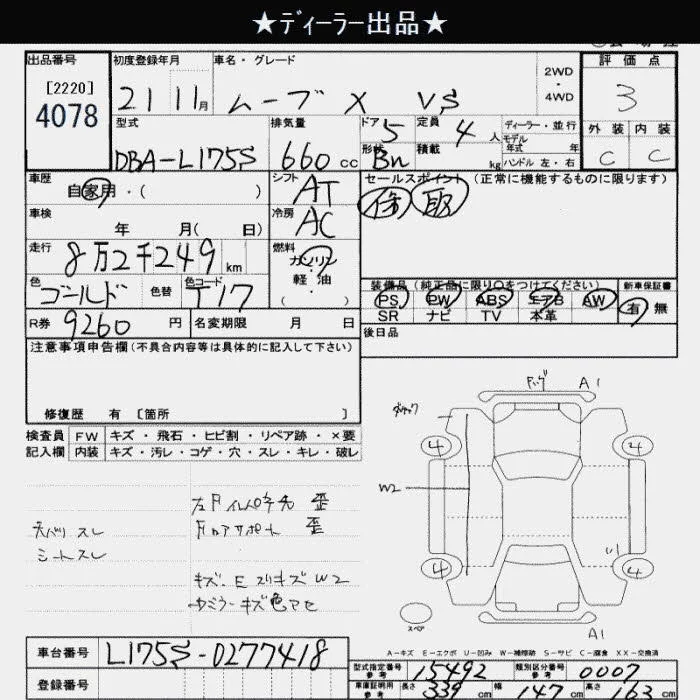 ★ディーラー出品★
出品番号
[2220]
4078
初度登録年月
21 11月
車名・グレード
ムーブ X VS
2WD
・
4WD
評価点
3
外装 内装
C C
型式
DBA-L175S
排気量
660 cc
ドア 5
形状 Bn
定員 4 人
積載 kg
ディーラー・並行
モデル
年式 年
ハンドル 左・右
車歴
自家用・( )
シフト
AT
セールスポイント (正常に機能するものに限ります)
保 取
車検
年 月( 日)
冷房
AC
走行
8万2千249 km
燃料
ガソリン
・
軽油
( )
色
ゴールド
色替
色コード
T17
装備品 (純正品に限り○をつけてください)
PS PW ABS エアB AW
SR ナビ TV 本革
新車保証書
有 無
R券 9260 円
名変期限 月 日
後日品
注意事項申告欄 (不具合内容等は具体的に記入して下さい)
修復歴 有 [箇所 ]
検査員 FW キズ・飛石・ヒビ割・リペア跡・×要
記入欄 内装 キズ・汚レ・コゲ・穴・スレ・キレ・破レ
A1
4 4
W2
4 4
スペア
A1
シートスレ
キズ. E スリキズ W2
A-キズ E-エクボ U-凹み W-補修跡 S-サビ C-腐食 XX-交換済
車台番号 L175S-0277418
登録番号
型式指定番号
参考
15492
類別区分番号
参考
0007
車庫証明用
参考
長さ 339 cm 幅 147 cm 高さ 163 cm